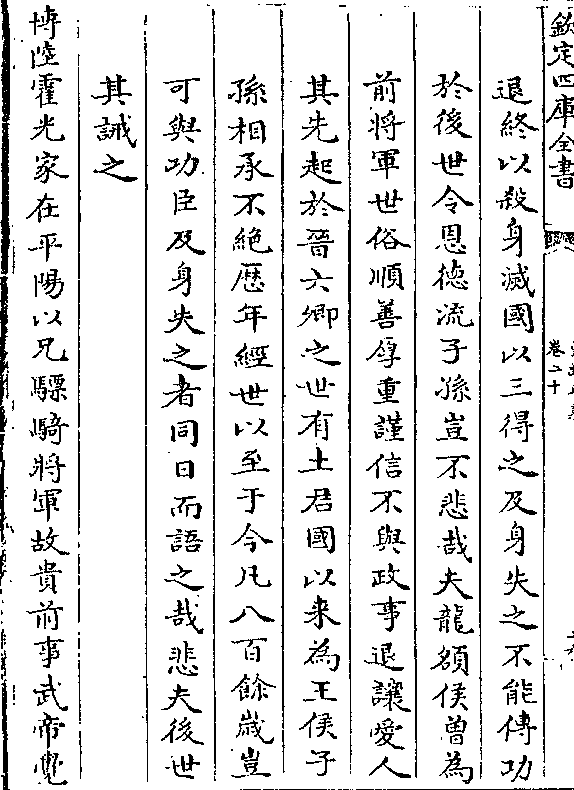 欽定四庫全書
卷二十
退終以殺身滅國以三得之及身失之不能傳功
於後世令恩德流子孫豈不悲哉夫龍頟侯曾為
前將軍世俗順善厚重謹信不與政事退讓愛人
其先起於晉六卿之世有土君國以来為王侯子
孫相承不絶歴年經世以至于今凡八百餘嵗豈
可與功臣及身失之者同日而語之哉悲夫後世
其誡之
博陸霍光家在平陽以兄驃騎將軍故貴前事武帝覺